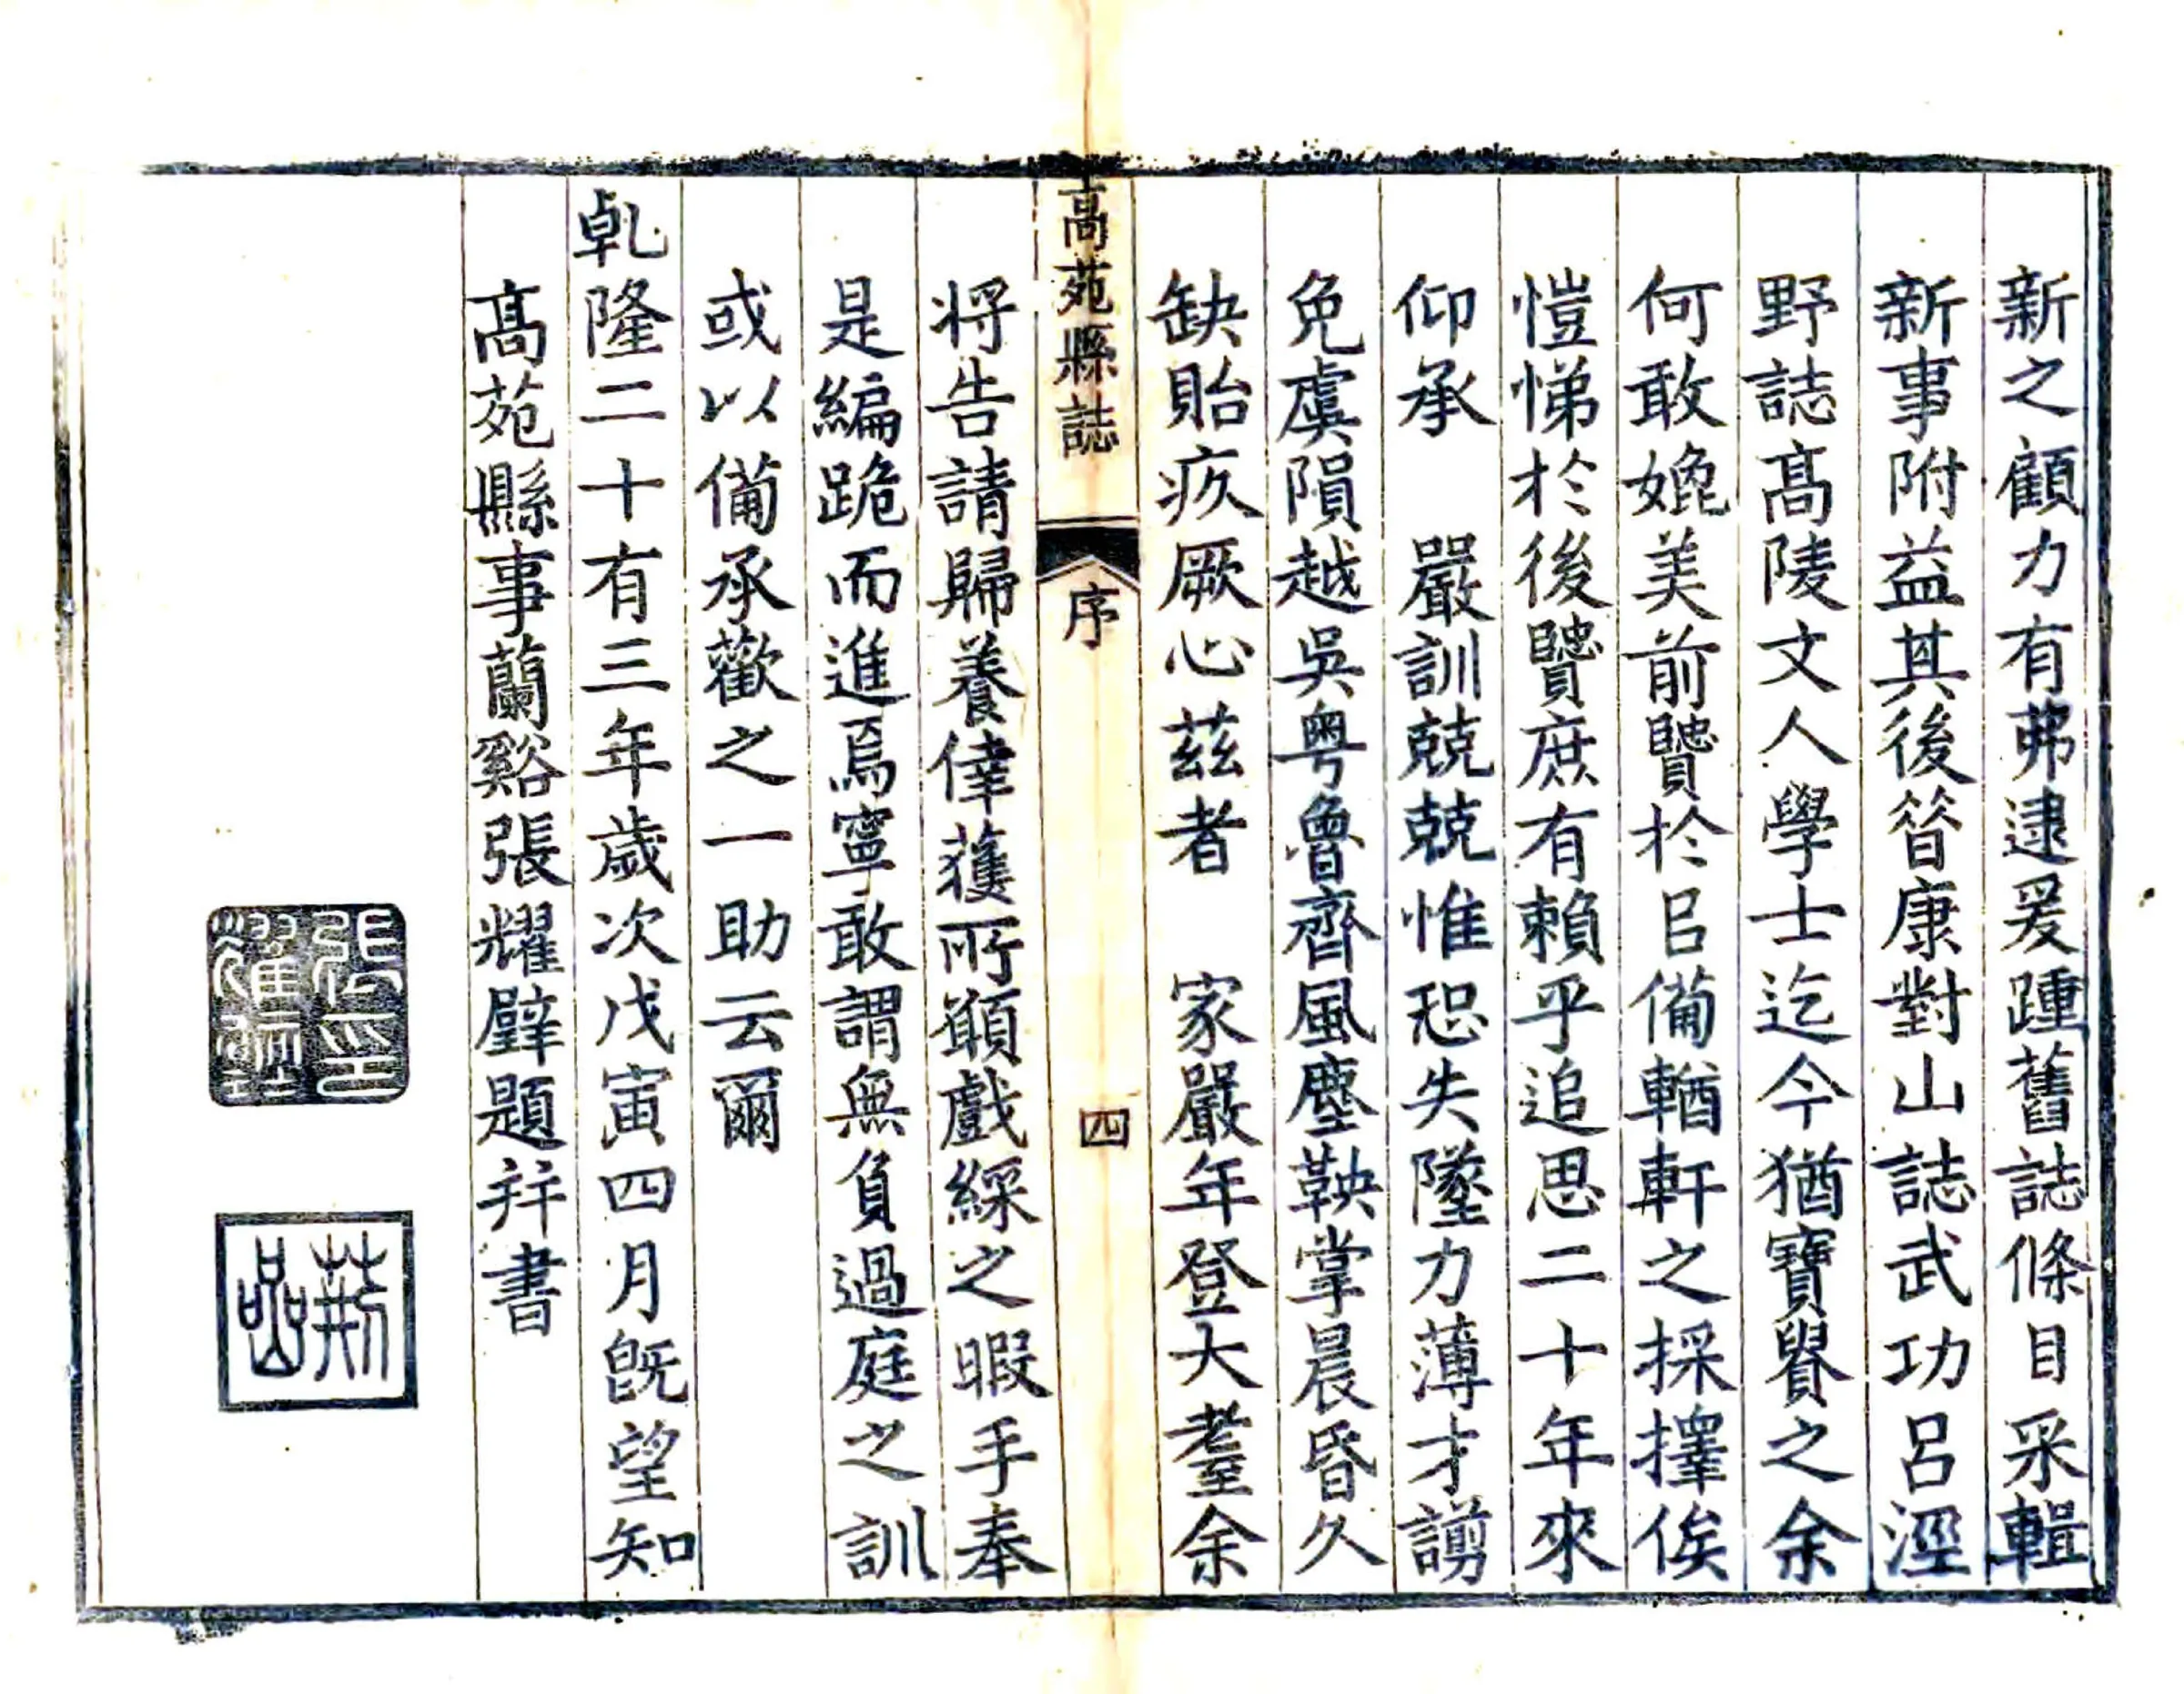 新之顧力有弗逮爰踵舊誌條目采輯
新事附益其後昝康對山誌武功呂涇
野誌髙陵文人學士迄今猶寶譽之余
何敢媲美前贒於㠯備輶軒之採擇俟
愷悌於後贒庶有賴乎追思二十年來
仰承 嚴訓兢兢惟恐失墜力薄才譾
免虞隕越吳粤魯齊風塵鞅掌晨昏久
缺貽疚厥心茲者 家嚴年登大耋余
髙苑縣誌 序 四
将告請歸養倖獲所願戲綵之暇手奉
是編跪而進焉寧敢謂無負過庭之訓
或以備承歡之一助云爾
乹隆二十有三年歲次戊寅四月旣望知
髙苑縣事蘭谿張耀璧題并書
張耀璧印